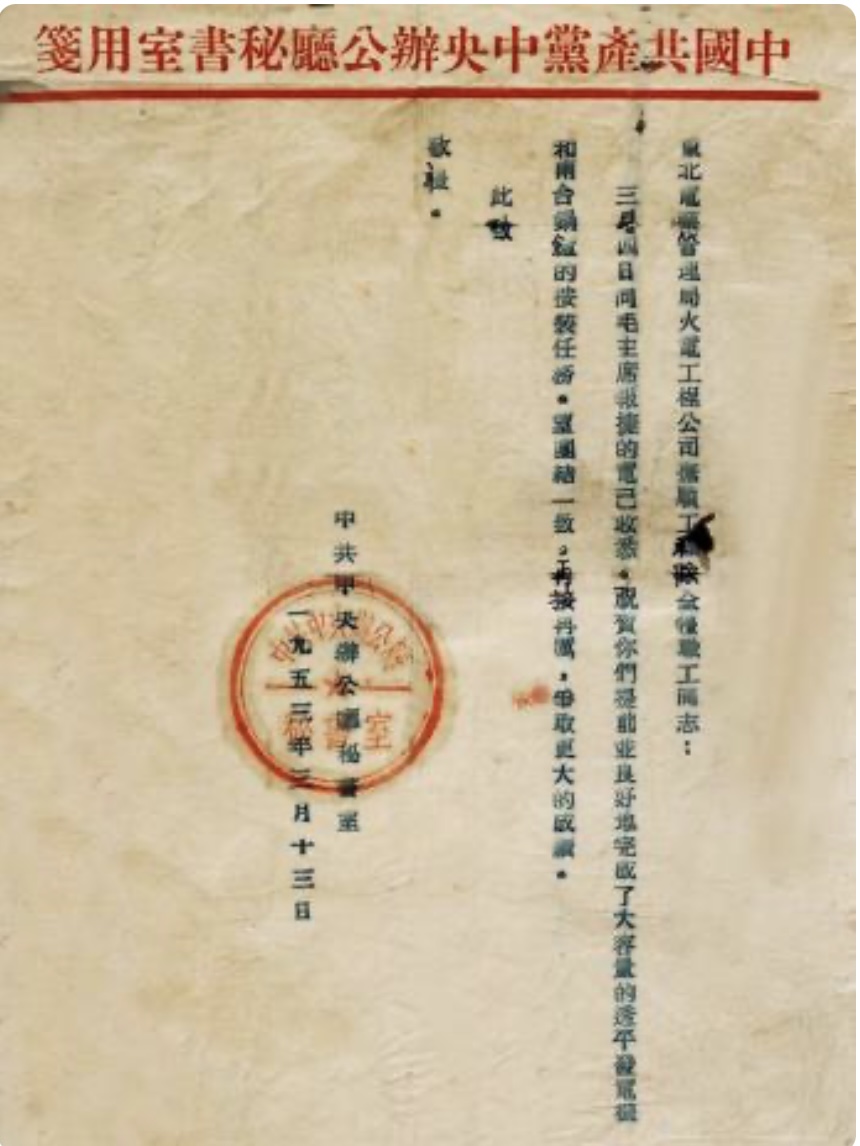 中國共產黨中央辦公廳秘書室用箋
東北電業管理局火電工程公司撫順工程隊全體職工同志：
三月四日向毛主席報捷的電已收悉。祝賀你們提前並良好地完成了大容量的透平發電機
和兩台鍋爐的按裝任務。望團結一致，再接再厲，爭取更大的成績。
此致
敬禮。
中共中央辦公廳秘書室
一九五三年三月十三日
中共中央辦公廳
秘書室